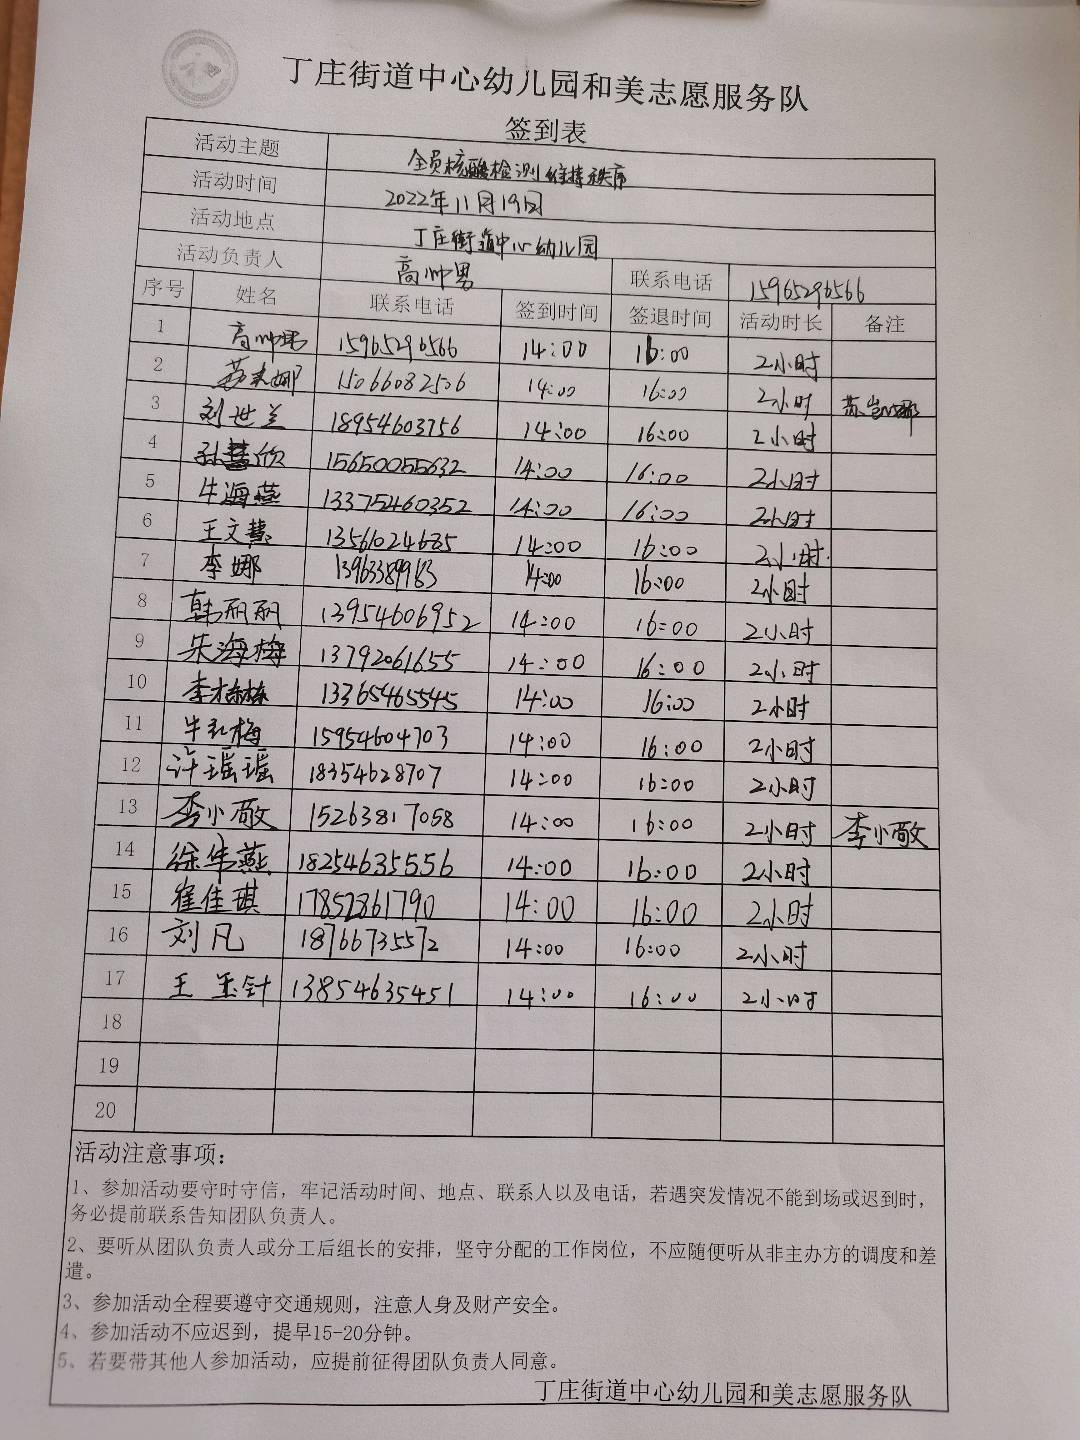 和
丁庄街道中心幼儿园和美志愿服务队
签到表
活动主题 全员核酸检测维持秩序
活动时间 2022年11月19日
活动地点 丁庄街道中心幼儿园
活动负责人 高帅男 联系电话 15965296566
序号 姓名 联系电话 签到时间 签退时间 活动时长 备注
1 高帅男 15965296566 14:00 16:00 2小时
2 15066082506 14:00 16:00 2小时
3 刘世兰 18954603756 14:00 16:00 2小时
4 孙慧欣 15650055632 14:00 16:00 2小时
5 牛海燕 13375460352 14:00 16:00 2小时
6 王文慧 13561024685 14:00 16:00 2小时
7 李娜 13963389983 14:00 16:00 2小时
8 韩丽丽 13954606952 14:00 16:00 2小时
9 朱海梅 13792061655 14:00 16:00 2小时
10 李栋栋 13365465545 14:00 16:00 2小时
11 牛红梅 15954604703 14:00 16:00 2小时
12 许瑶瑶 18354628707 14:00 16:00 2小时
13 李小敬 15263817058 14:00 16:00 2小时 李小敬
14 徐华燕 18254635556 14:00 16:00 2小时
15 崔佳琪 17852861790 14:00 16:00 2小时
16 刘凡 18766735572 14:00 16:00 2小时
17 王玉针 13854635451 14:00 16:00 2小时
18
19
20
活动注意事项：
1、参加活动要守时守信，牢记活动时间、地点、联系人以及电话，若遇突发情况不能到场或迟到时，
务必提前联系告知团队负责人。
2、要听从团队负责人或分工后组长的安排，坚守分配的工作岗位，不应随便听从非主办方的调度和差
遣。
3、参加活动全程要遵守交通规则，注意人身及财产安全。
4、参加活动不应迟到，提早15-20分钟。
5、若要带其他人参加活动，应提前征得团队负责人同意。
丁庄街道中心幼儿园和美志愿服务队